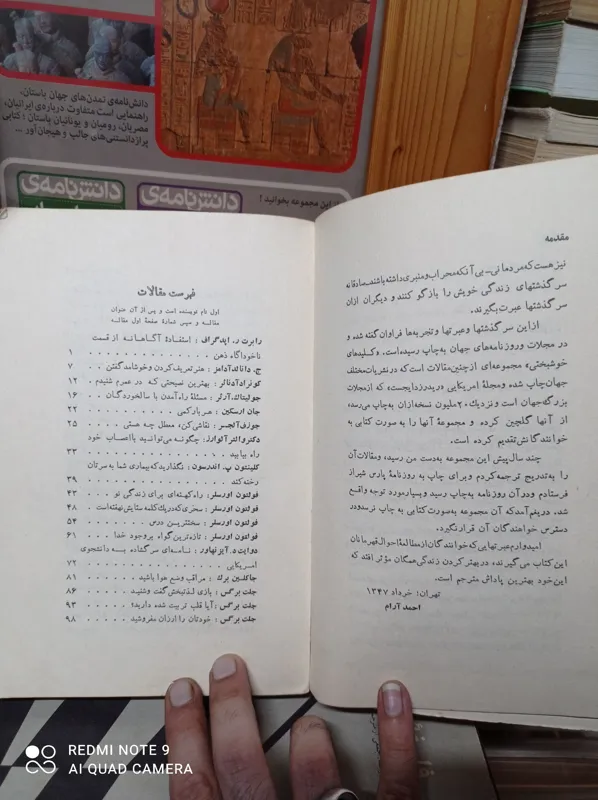 دانش‌نامه‌ی تمدن‌های جهان باستان،
راهنمایی است متفاوت درباره‌ی ایرانیان،
مصریان، رومیان و یونانیان باستان؛ کتابی
پر از دانستنی‌های جالب و هیجان‌آور ...
از این مجموعه بخوانید!
دانش‌نامه‌ی
دانش‌نامه‌ی
مقدمه
نیز هست که مردمانی ــ بی آنکه محراب و منبری داشته باشند، صادقانه
سرگذشتهای زندگی خویش را بازگو کنند و دیگران ازان
سرگذشتها عبرت بگیرند.
از این سرگذشتها و عبرتها و تجربه‌ها فراوان گفته شده و
در مجلات و روزنامه‌های جهان به‌چاپ رسیده‌است. «کلیدهای
خوشبختی» مجموعه‌ای از چنین مقالات است که در نشریات مختلف
جهان چاپ شده و مجلهٔ امریکایی «ریدرز دایجست» که از مجلات
بزرگ جهان است و نزدیک ۲۰ ملیون نسخه ازان به‌چاپ می‌رسد،
از آنها گلچین کرده و مجموعهٔ آنها را به‌صورت کتابی به
خوانندگانش تقدیم کرده است.
چند سال پیش این مجموعه به‌دست من رسید، و مقالات آن
را به‌تدریج ترجمه کردم و برای چاپ به روزنامهٔ پارس شیراز
فرستادم و در آن روزنامه به‌چاپ رسید و بسیار مورد توجه واقع
شد. دریغم آمد که آن مجموعه به‌صورت کتابی به چاپ نرسد و در
دسترس خوانندگان آن قرار نگیرد.
امیدوارم عبرتهایی که خوانندگان از مطالعهٔ احوال قهرمانان
این کتاب می‌گیرند، در بهتر کردن زندگی همگان مؤثر افتد که
این خود بهترین پاداش مترجم است.
تهران: خرداد ۱۳۴۷
احمد آرام
فهرست مقالات
اول نام نویسنده است و پس از آن عنوان
مقاله و سپس شمارهٔ صفحهٔ اول مقاله
رابرت ر. اپدگراف : استفادهٔ آگاهانه از قسمت
ناخودآگاه ذهن . . . . . . . . . . ۱
ج. دانالد آدامز : هنر تعریف کردن و خوشامد گفتن . ۷
کونراد آدناور : بهترین نصیحتی که در عمرم شنیدم . ۱۲
جولیتاک. آرثر : مسئلهٔ راه آمدن با سالخوردگان . ۱۶
جان ارسکین : هر بار کمی . . . . . . . ۲۲
جوزف آلجسر : نقاشی کن، معطل چه هستی . . . ۲۵
دکتر والتر آلوارز : چگونه می‌توانید با اعصاب خود
راه بیایید . . . . . . . . . . ۳۳
کلینتون پ. اندرسون : نگذارید که بیماری شما به سرتان
رخنه کند . . . . . . . . . . ۳۹
فولتون اورسلر : راه کهنه‌ای برای زندگی نو . . . ۴۳
فولتون اورسلر : سحری که در یک کلمه ستایش نهفته است ۴۸
فولتون اورسلر : سخت‌ترین درس . . . . . ۵۴
فولتون اورسلر : تازه‌ترین گواه بر وجود خدا . . ۶۱
دوایت د. آیزنهاور : نامه‌ای سرگشاده به دانشجوی
امریکایی . . . . . . . . . . ۷۲
جاکلین برک : مراقب وضع هوا باشید . . . . ۸۱
جلت برگس : بازی لذتبخش گفت وشنید . . . ۸۶
جلت برگس : آیا قلب تربیت شده دارید؟ . . . ۹۳
جلت برگس : خودتان را ارزان مفروشید . . . ۹۸
REDMI NOTE 9
AI QUAD CAMERA